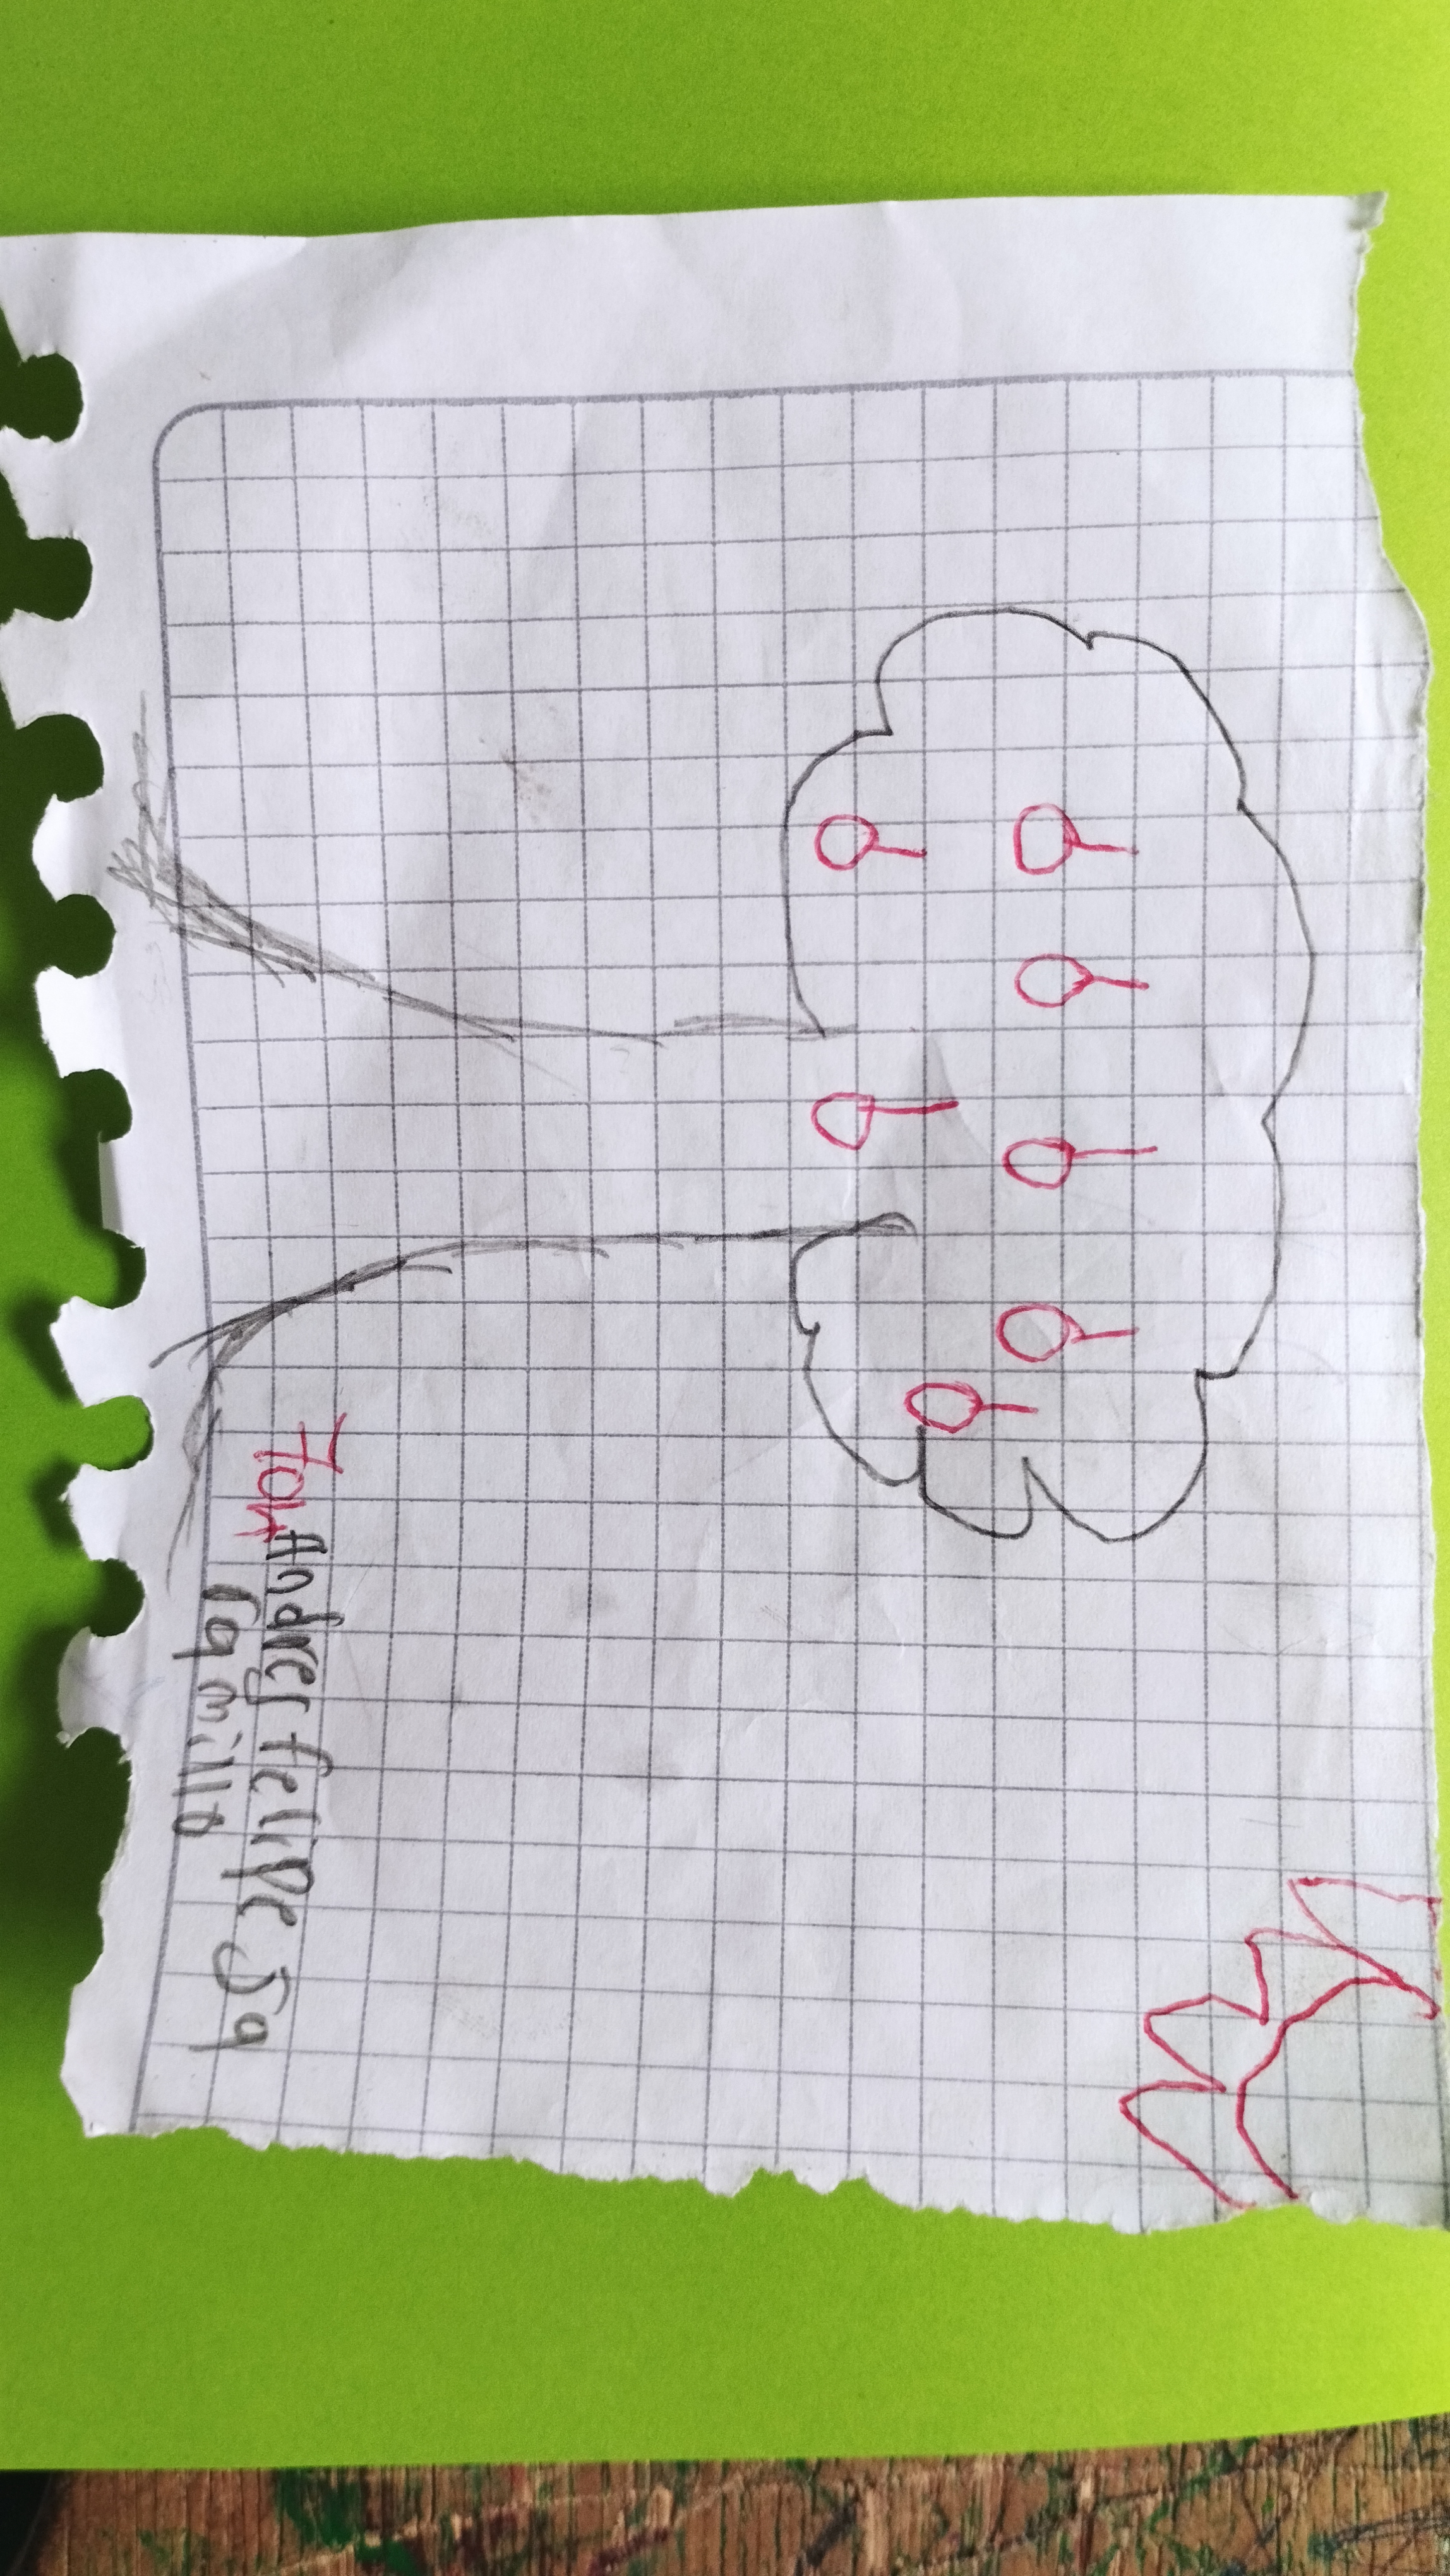 Andrey felipe Ja
ramillo